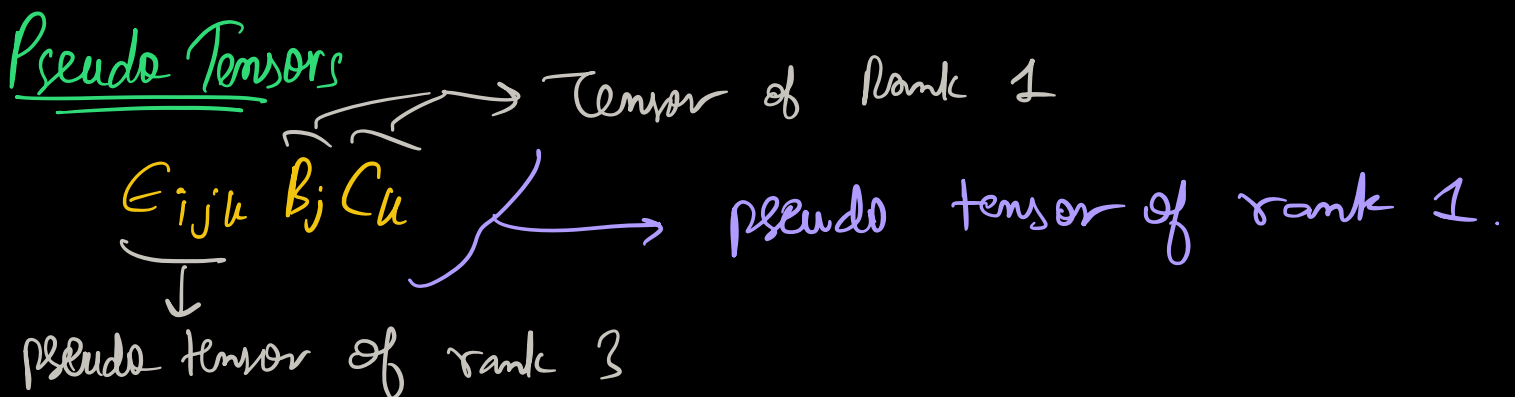 Pseudo Tensors
Tensor of Rank 1
ϵijk Bj Ck
pseudo tensor of rank 1.
pseudo tensor of rank 3